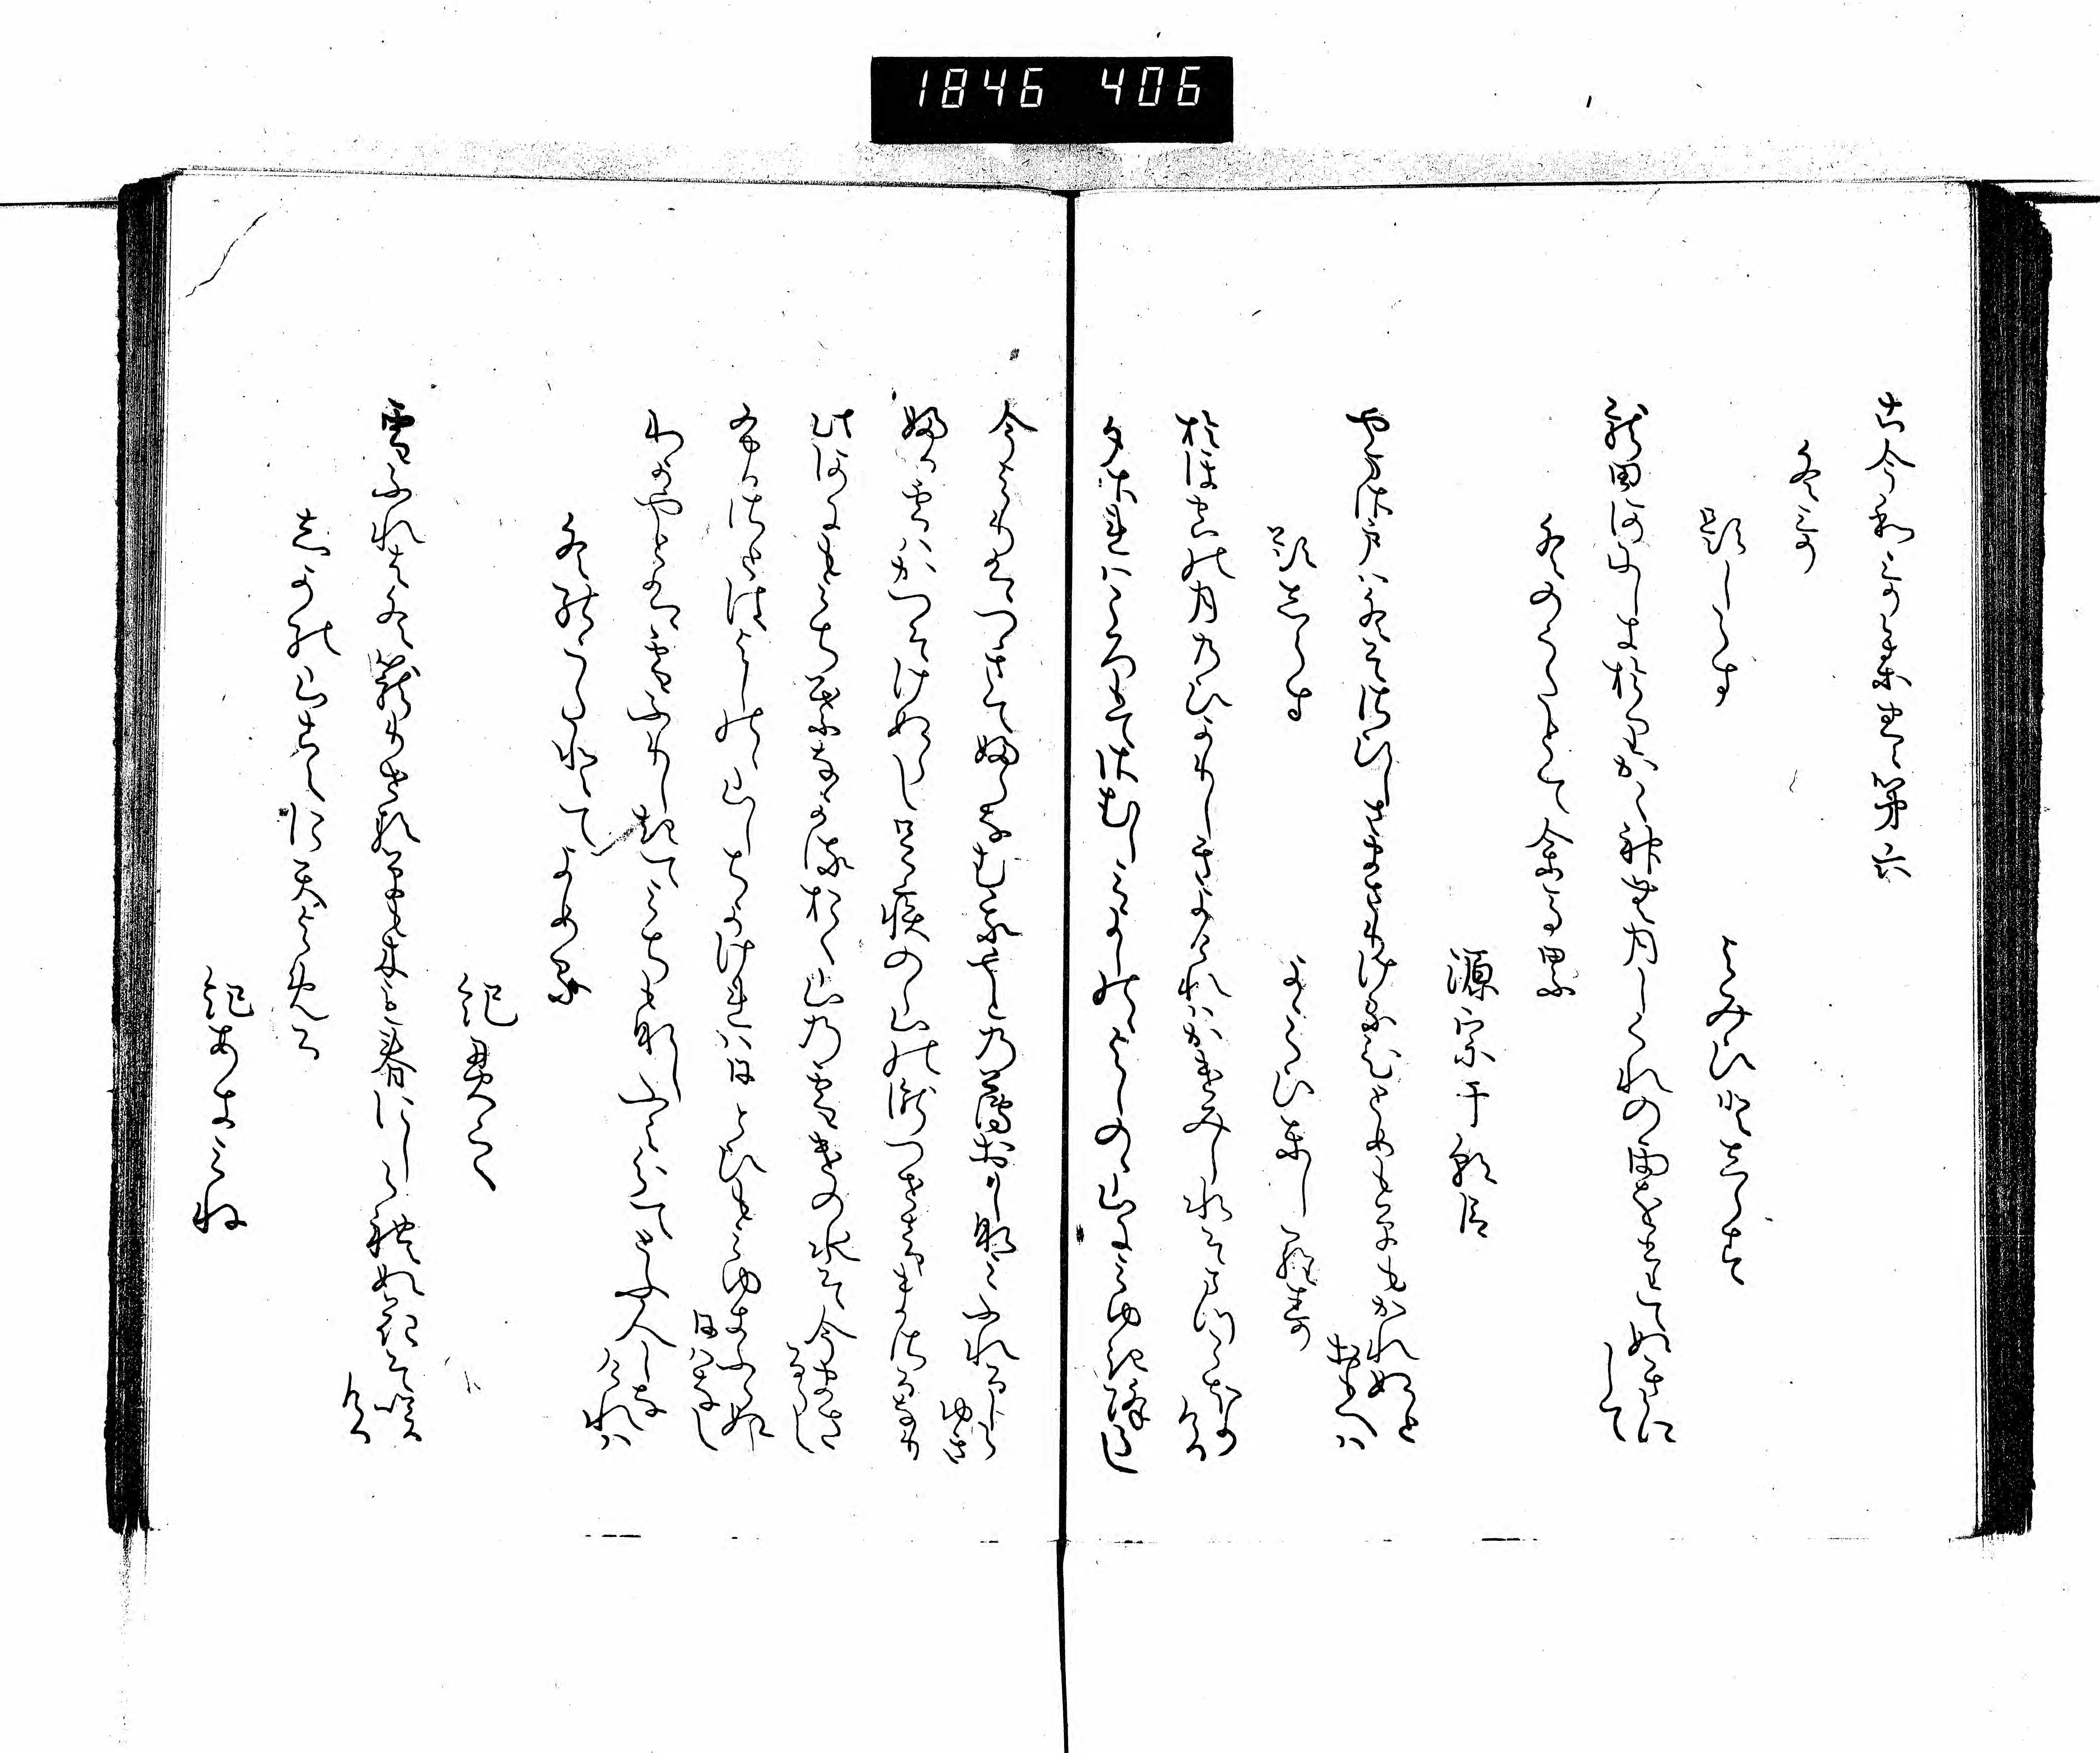 1846 406
古今和歌集巻第六
冬哥
題しらす
よみひとしらす
龍田河にしきおりかく神無月しくれの雨をたてぬきにして
冬のうたとて
源宗于朝臣
山里は冬そさひしさまさりける人めも草もかれぬとおもへは
題しらす
よみひとしらす
おほそらの月のひかりしきよけれはかけみし水そまつこほりける
夕されは衣手さむしみよしのゝよしのゝ山にみゆき降らし
今よりはつきてふらなむわかやとの薄おしなみふれるしらゆき
ふる雪はかつそけぬらし足引の山の瀧つせ音まさるなり
此河にもみちはなかるおく山の雪きの水そ今まさるらし
ふるさとはよしのゝ山しちかけれは一日もみゆきふらぬ日はなし
わかやとは雪ふりしきてみちもなしふみわけてとふ人しなけれは
冬のうたとてよめる
紀貫之
雪ふれは冬こもりせる草も木も春にしられぬ花そ咲ける
しかの山こえにてよめる
紀あきみね